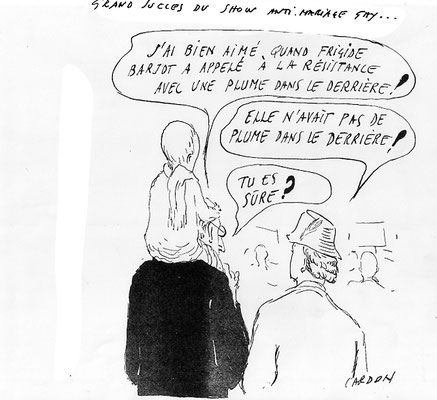 GRAND SUCCES DU SHOW ANTI-MARIAGE GAY...
J'AI BIEN AIMÉ QUAND FRIGIDE
BARJOT A APPELÉ À LA RÉSISTANCE
AVEC UNE PLUME DANS LE DERRIÈRE!
ELLE N'AVAIT PAS DE
PLUME DANS LE DERRIÈRE!
TU ES
SÛRE?
CARDON